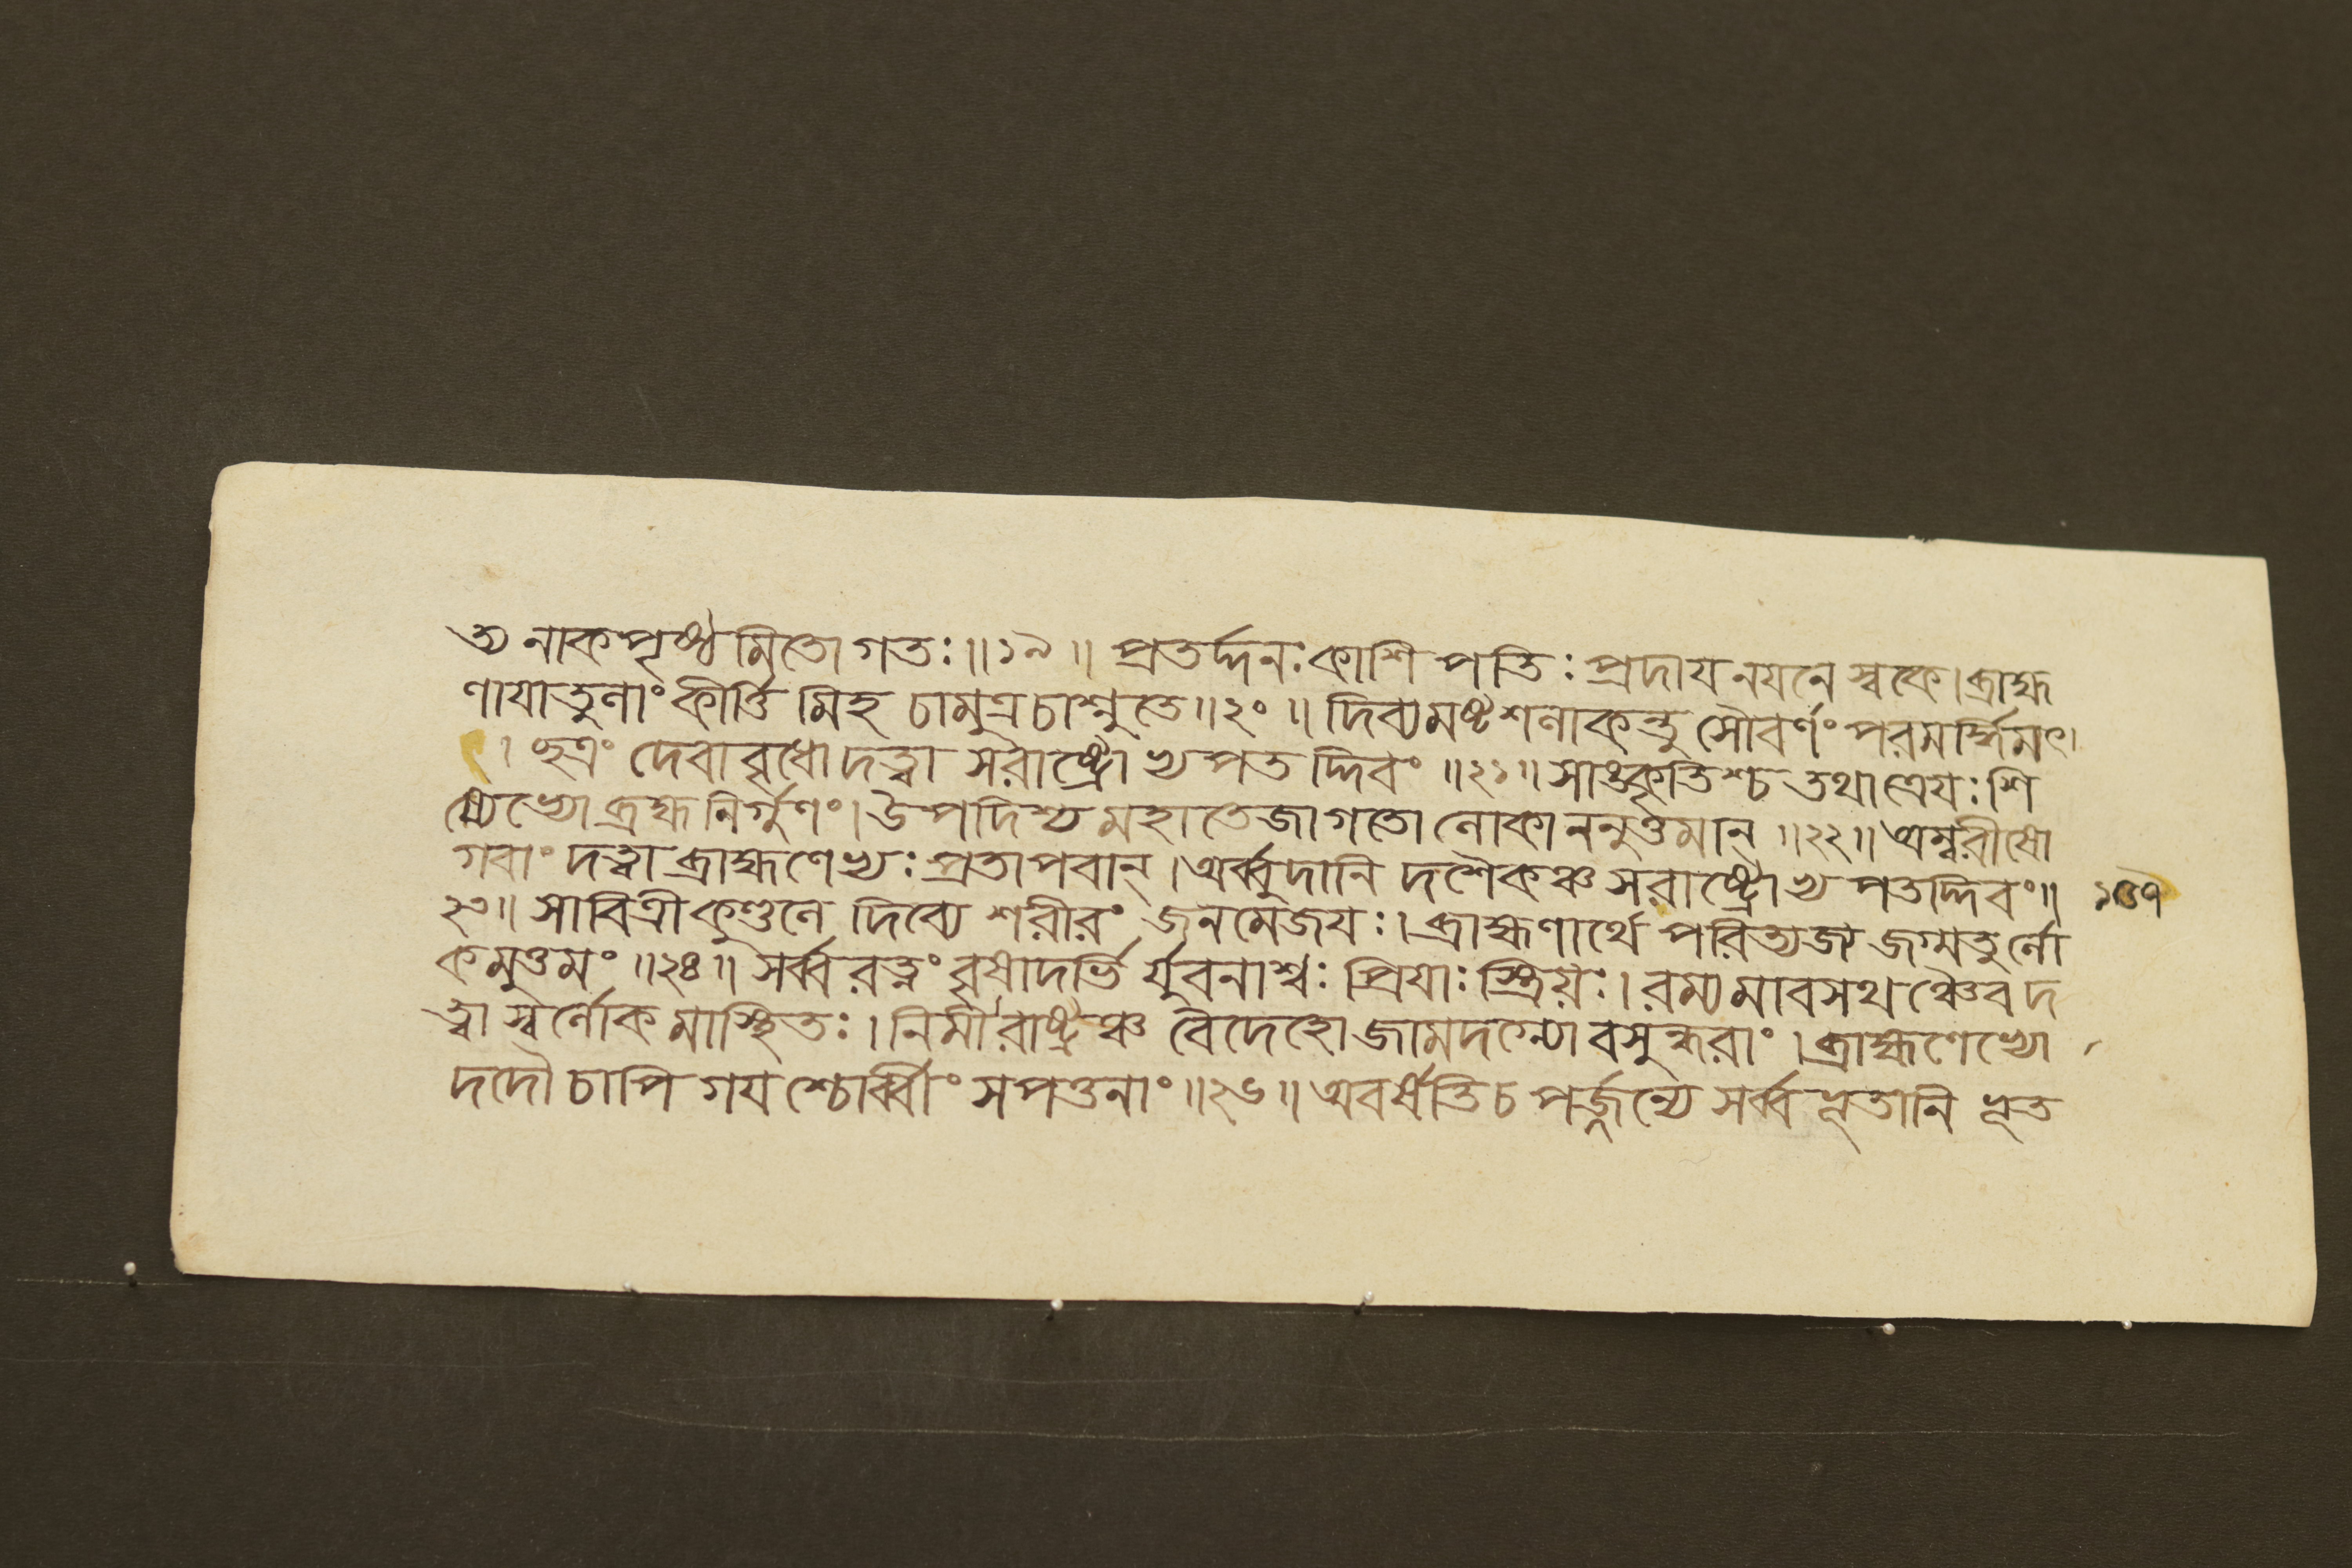 ত্য নাকপৃষ্ঠমিতো গতঃ॥১৯॥ প্রতর্দ্দনঃ কাশিপতিঃ প্রদায নযনে স্বকে। ব্রাহ্ম
ণাযাতুলাং কীর্ত্তিমিহ চামুত্র চাশ্নুতে॥২০॥ দিব্যমষ্টশলাকন্তু সৌবর্ণং পরমর্দ্ধিমৎ।
। ছত্রং দেবাবৃধো দত্ত্বা সরাষ্ট্রোভ্যপতদ্দিবং॥২১॥ সাঙ্কৃতিশ্চ তথাত্রেযঃ শি
ষ্যেভ্যো ব্রহ্ম নির্গুণং। উপদিশ্য মহাতেজা গতো লোকাননুত্তমান্॥২২॥ অম্বরীষো
গবাং দত্ত্বা ব্রাহ্মণেভ্যঃ প্রতাপবান্। অর্ব্বুদানি দশৈকঞ্চ সরাষ্ট্রোভ্যপতদ্দিবং॥
২৩॥ সাবিত্রী কুণ্ডলে দিব্যে শরীরং জনমেজযঃ। ব্রাহ্মণার্থে পরিত্যজ্য জগ্মতুর্লো
কমুত্তমং॥২৪॥ সর্ব্বরত্নং বৃষাদর্ভির্যুবনাশ্বঃ প্রিযাঃ স্ত্রিয়ঃ। রম্যমাবসথঞ্চৈব দ
ত্ত্বা স্বর্লোকমাস্থিতঃ। নিমী রাষ্ট্রঞ্চ বৈদেহো জামদগ্ন্যো বসুন্ধরাং। ব্রাহ্মণেভ্যো
দদৌ চাপি গযশ্চোর্ব্বীং সপত্তনাং॥২৬॥ অবর্ষতি চ পর্জ্জন্যে সর্ব্বভূতানি ভূত